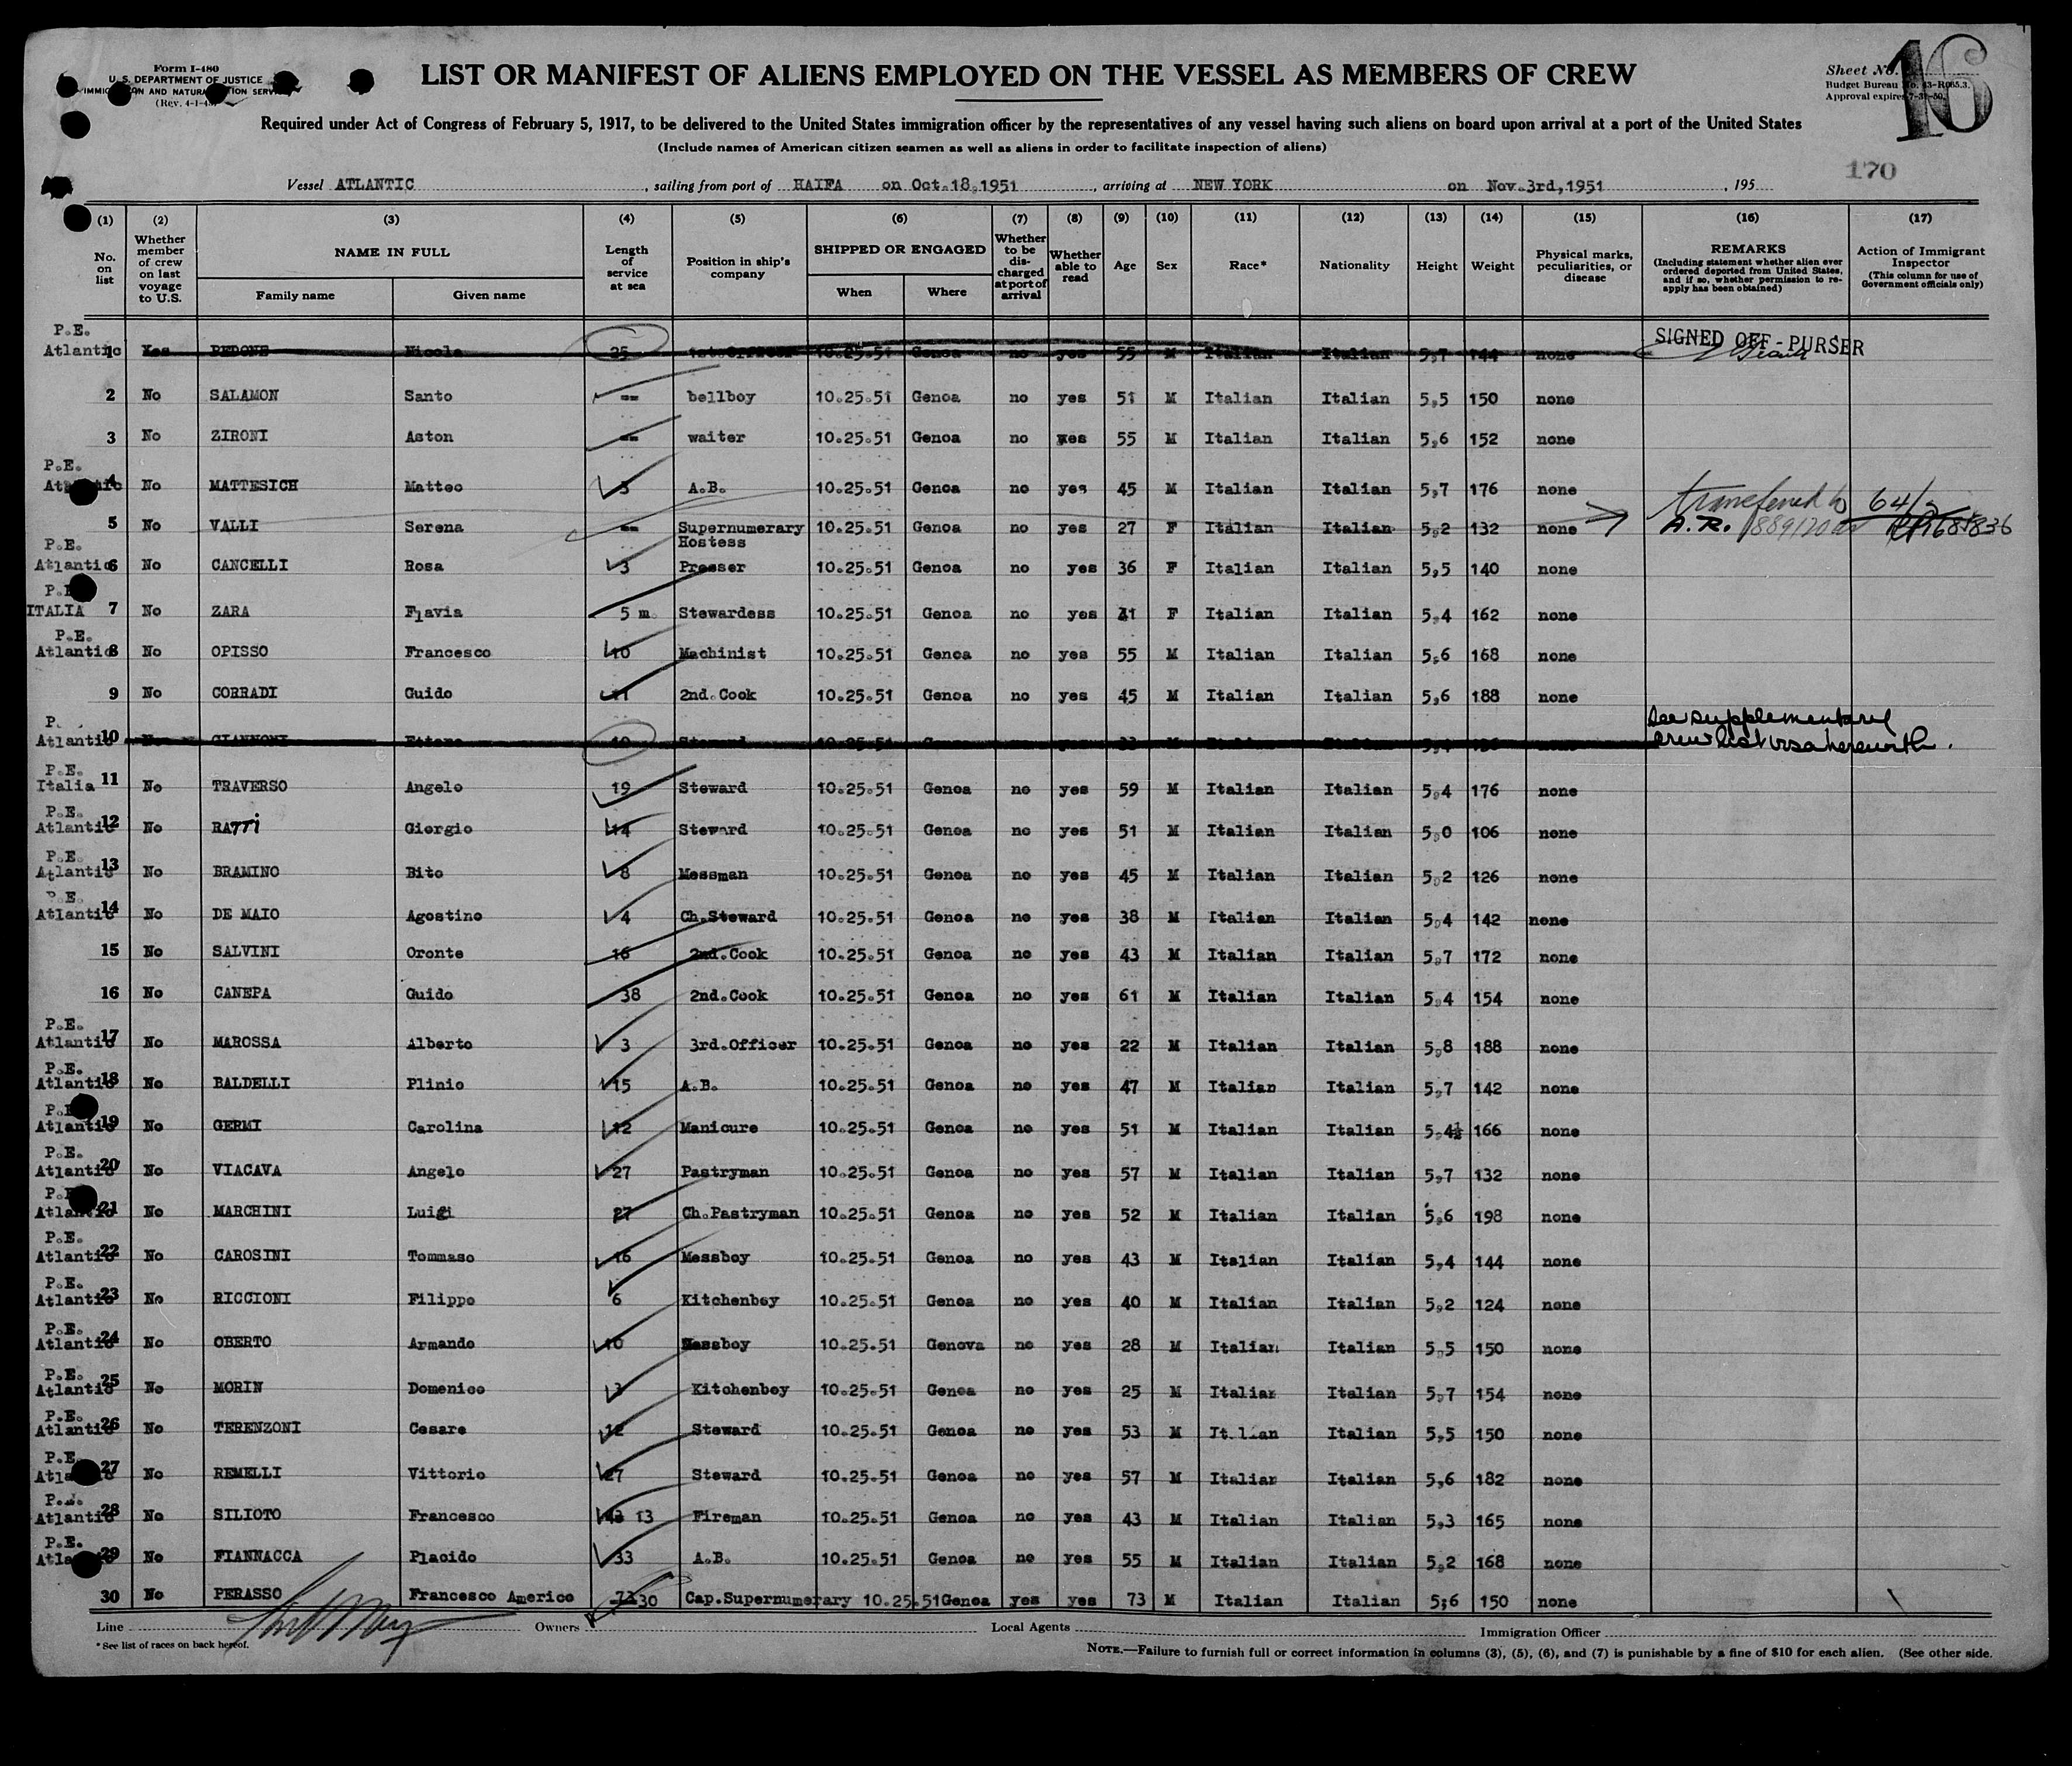 Form I-480
U. S. DEPARTMENT OF JUSTICE
IMMIGRATION AND NATURALIZATION SERVICE
(Rev. 4-1-48)
LIST OR MANIFEST OF ALIENS EMPLOYED ON THE VESSEL AS MEMBERS OF CREW
Sheet No. 16
Budget Bureau No. 43-R065.3.
Approval expires 7-31-50.
Required under Act of Congress of February 5, 1917, to be delivered to the United States immigration officer by the representatives of any vessel having such aliens on board upon arrival at a port of the United States
(Include names of American citizen seamen as well as aliens in order to facilitate inspection of aliens)
170
Vessel ATLANTIC , sailing from port of HAIFA on Oct.18,1951 , arriving at NEW YORK on Nov.3rd,1951 , 195
(1) (2) (3) (4) (5) (6) (7) (8) (9) (10) (11) (12) (13) (14) (15) (16) (17)
No. on list
Whether member of crew on last voyage to U.S.
NAME IN FULL
Family name Given name
Length of service at sea
Position in ship's company
SHIPPED OR ENGAGED
When Where
Whether to be discharged at port of arrival
Whether able to read
Age Sex Race* Nationality Height Weight
Physical marks, peculiarities, or disease
REMARKS
(Including statement whether alien ever ordered deported from United States, and if so, whether permission to reapply has been obtained)
Action of Immigrant Inspector
(This column for use of Government officials only)
P.E.
Atlantic 1 Yes PEDONE Nicola 25 1st.Officer 10.25.51 Genoa no yes 55 M Italian Italian 5,7 144 none SIGNED OFF - PURSER
2 No SALAMON Santo -- bellboy 10.25.51 Genoa no yes 51 M Italian Italian 5,5 150 none
3 No ZIRONI Aston -- waiter 10.25.51 Genoa no yes 55 M Italian Italian 5,6 152 none
P.E.
Atlantic 4 No MATTESICH Matteo 3 A.B. 10.25.51 Genoa no yes 45 M Italian Italian 5,7 176 none
transferred to 64/3
5 No VALLI Serena -- Supernumerary Hostess 10.25.51 Genoa no yes 27 F Italian Italian 5,2 132 none A.R.
P.E.
Atlantic 6 No CANCELLI Rosa 3 Presser 10.25.51 Genoa no yes 36 F Italian Italian 5,5 140 none
P.E.
ITALIA 7 No ZARA Flavia 5 m. Stewardess 10.25.51 Genoa no yes 41 F Italian Italian 5,4 162 none
P.E.
Atlantic 8 No OPISSO Francesco 10 Machinist 10.25.51 Genoa no yes 55 M Italian Italian 5,6 168 none
9 No CORRADI Guido 11 2nd.Cook 10.25.51 Genoa no yes 45 M Italian Italian 5,6 188 none
P.
Atlantic 10 No GIANNONI Ettore 10 Steward 10.25.51 Genoa M Italian Italian none See supplementary
crew list visa herewith.
P.E.
Italia 11 No TRAVERSO Angelo 19 Steward 10.25.51 Genoa no yes 59 M Italian Italian 5,4 176 none
P.E.
Atlantic 12 No RATTi Giorgio 14 Steward 10.25.51 Genoa no yes 51 M Italian Italian 5,0 106 none
P.E.
Atlantic 13 No BRAMINO Bito 8 Messman 10.25.51 Genoa no yes 45 M Italian Italian 5,2 126 none
P.E.
Atlantic 14 No DE MAIO Agostino 4 Ch.Steward 10.25.51 Genoa no yes 38 M Italian Italian 5,4 142 none
15 No SALVINI Oronte 16 2nd.Cook 10.25.51 Genoa no yes 43 M Italian Italian 5,7 172 none
16 No CANEPA Guido 38 2nd.Cook 10.25.51 Genoa no yes 61 M Italian Italian 5,4 154 none
P.E.
Atlantic 17 No MAROSSA Alberto 3 3rd.Officer 10.25.51 Genoa no yes 22 M Italian Italian 5,8 188 none
P.E.
Atlantic 18 No BALDELLI Plinio 15 A.B. 10.25.51 Genoa no yes 47 M Italian Italian 5,7 142 none
P.E.
Atlantic 19 No GERMI Carolina 12 Manicure 10.25.51 Genoa no yes 51 M Italian Italian 5,4½ 166 none
P.E.
Atlantic 20 No VIACAVA Angelo 27 Pastryman 10.25.51 Genoa no yes 57 M Italian Italian 5,7 132 none
P.E.
Atlantic 21 No MARCHINI Luigi 27 Ch.Pastryman 10.25.51 Genoa no yes 52 M Italian Italian 5,6 198 none
P.E.
Atlantic 22 No CAROSINI Tommaso 16 Messboy 10.25.51 Genoa no yes 43 M Italian Italian 5,4 144 none
P.E.
Atlantic 23 No RICCIONI Filippo 6 Kitchenboy 10.25.51 Genoa no yes 40 M Italian Italian 5,2 124 none
P.E.
Atlantic 24 No OBERTO Armando 10 Messboy 10.25.51 Genova no yes 28 M Italian Italian 5,5 150 none
P.E.
Atlantic 25 No MORIN Domenico 3 Kitchenboy 10.25.51 Genoa no yes 25 M Italian Italian 5,7 154 none
P.E.
Atlantic 26 No TERENZONI Cesare 12 Steward 10.25.51 Genoa no yes 53 M Italian Italian 5,5 150 none
P.E.
Atlantic 27 No REMELLI Vittorio 27 Steward 10.25.51 Genoa no yes 57 M Italian Italian 5,6 182 none
P.E.
Atlantic 28 No SILIOTO Francesco 13 Fireman 10.25.51 Genoa no yes 43 M Italian Italian 5,3 165 none
P.E.
Atlantic 29 No FIANNACCA Placido 33 A.B. 10.25.51 Genoa no yes 55 M Italian Italian 5,2 168 none
30 No PERASSO Francesco Americo 73 30 Cap.Supernumerary 10.25.51 Genoa yes yes 73 M Italian Italian 5;6 150 none
Line Owners Local Agents Immigration Officer
*See list of races on back hereof.
NOTE.—Failure to furnish full or correct information in columns (3), (5), (6), and (7) is punishable by a fine of $10 for each alien. (See other side.